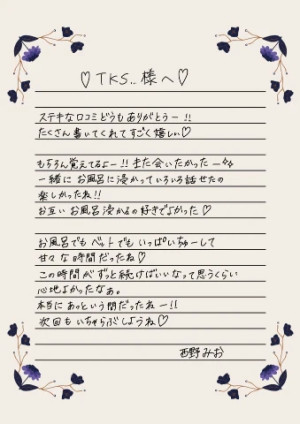 ♡TKS..様へ♡
ステキな口コミどうもありがとうー!!
たくさん書いてくれてすごく嬉しい♡
もちろん覚えてるよー!!また会いたかったー
一緒にお風呂に浸かっていろいろ話せたの
楽しかったね!!
お互いお風呂浸かるの好きでよかった♡
お風呂でもベットでもいっぱいちゅーして
甘々な時間だったね♡
この時間がずっと続けばいいなって思うくらい
心地よかったなぁ。
本当にあっという間だったねー!!
次回もいちゃらぶしようね♡
西野みお